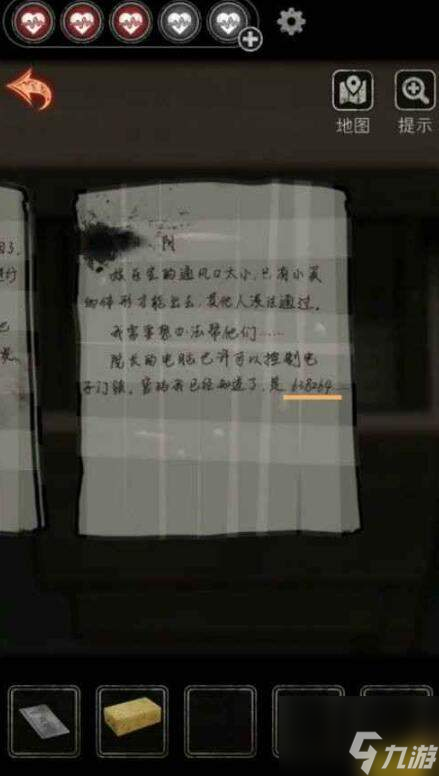 地图
提示
阴
放日室的通风口太小，只有小英
的体形才能出去，其他人没法通过。
我需要想办法帮他们……
院长的电脑也许可以控制电
子门锁，密码我已经知道了，是 638264
九游